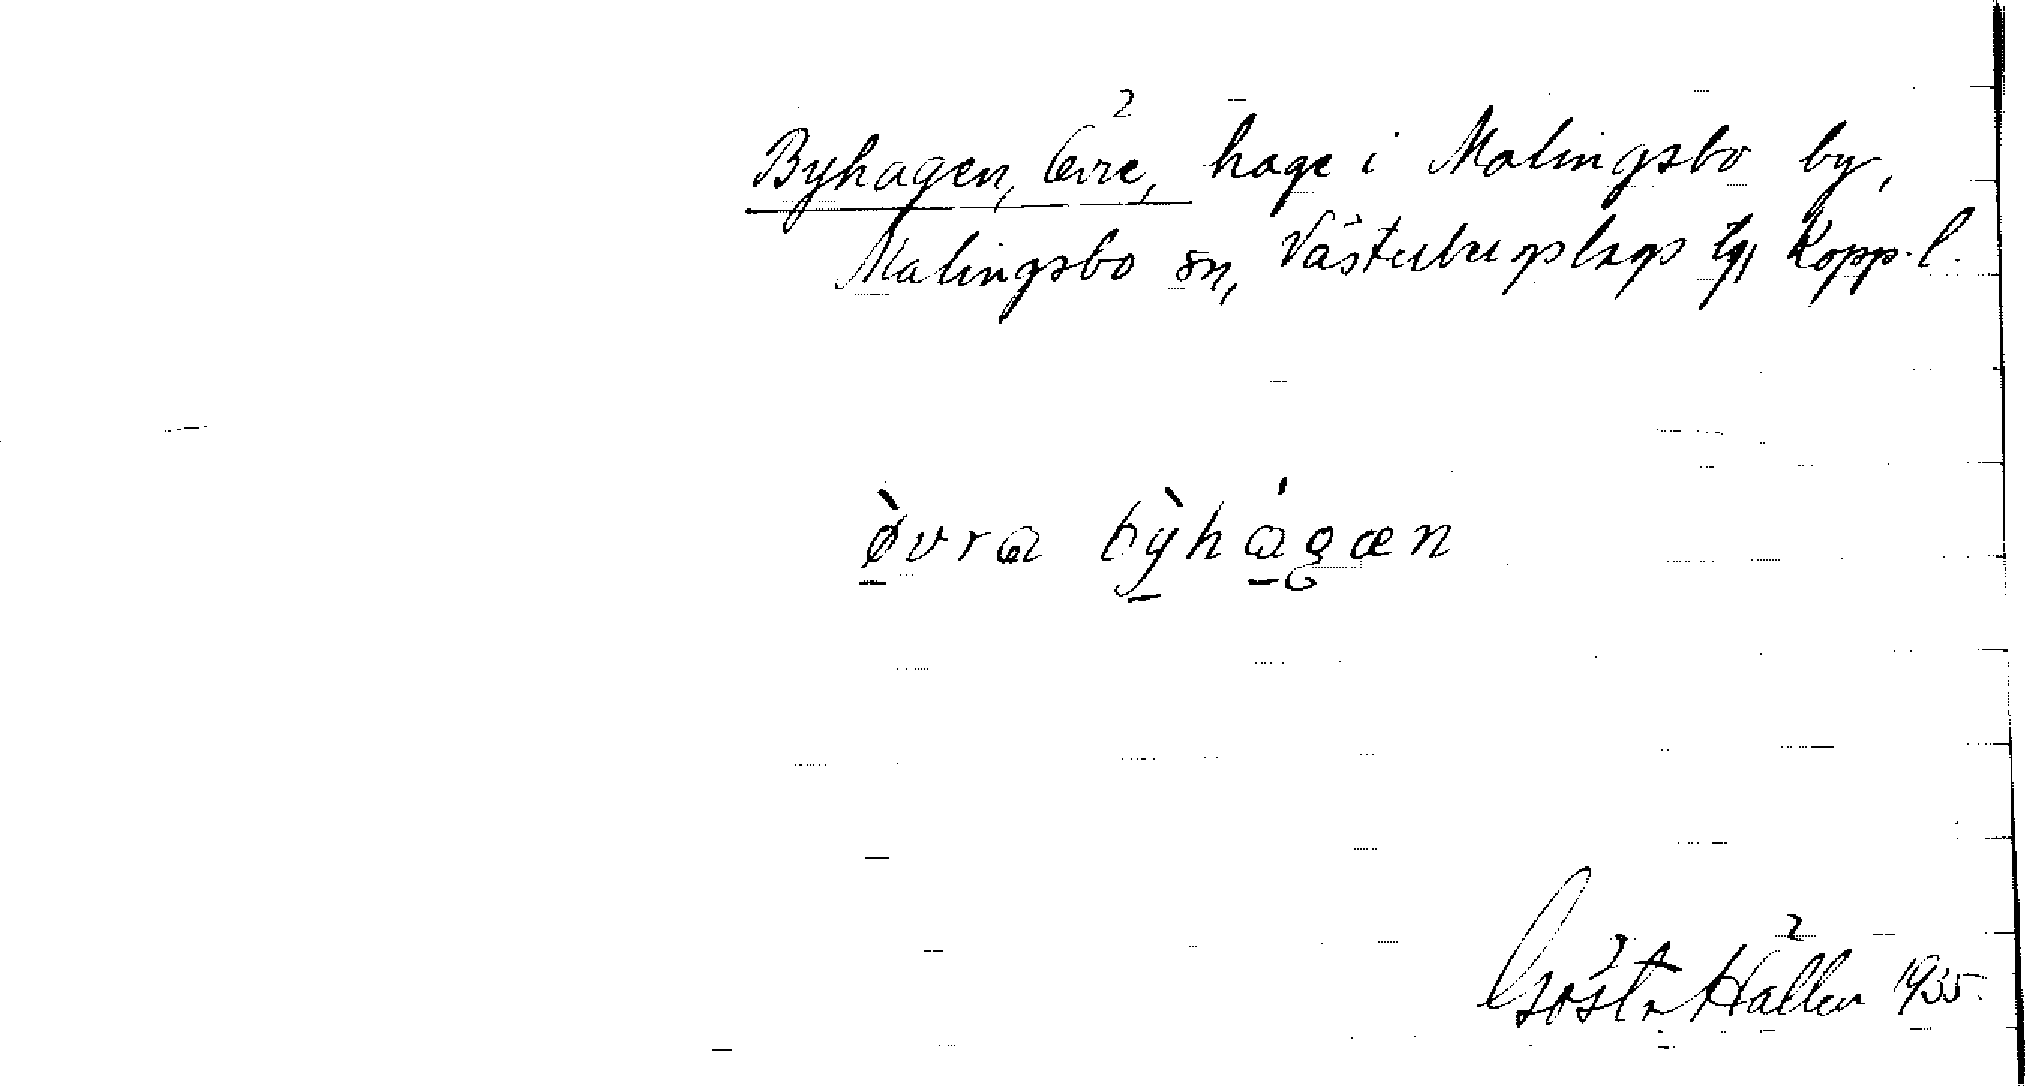 Byhagen, Övre, hage i Malingsbo by,
Malingsbo sn, Västerbergslags tg, Kopp. l.
ø̀vra bỳhágæn
Gösta Hällen 1935.